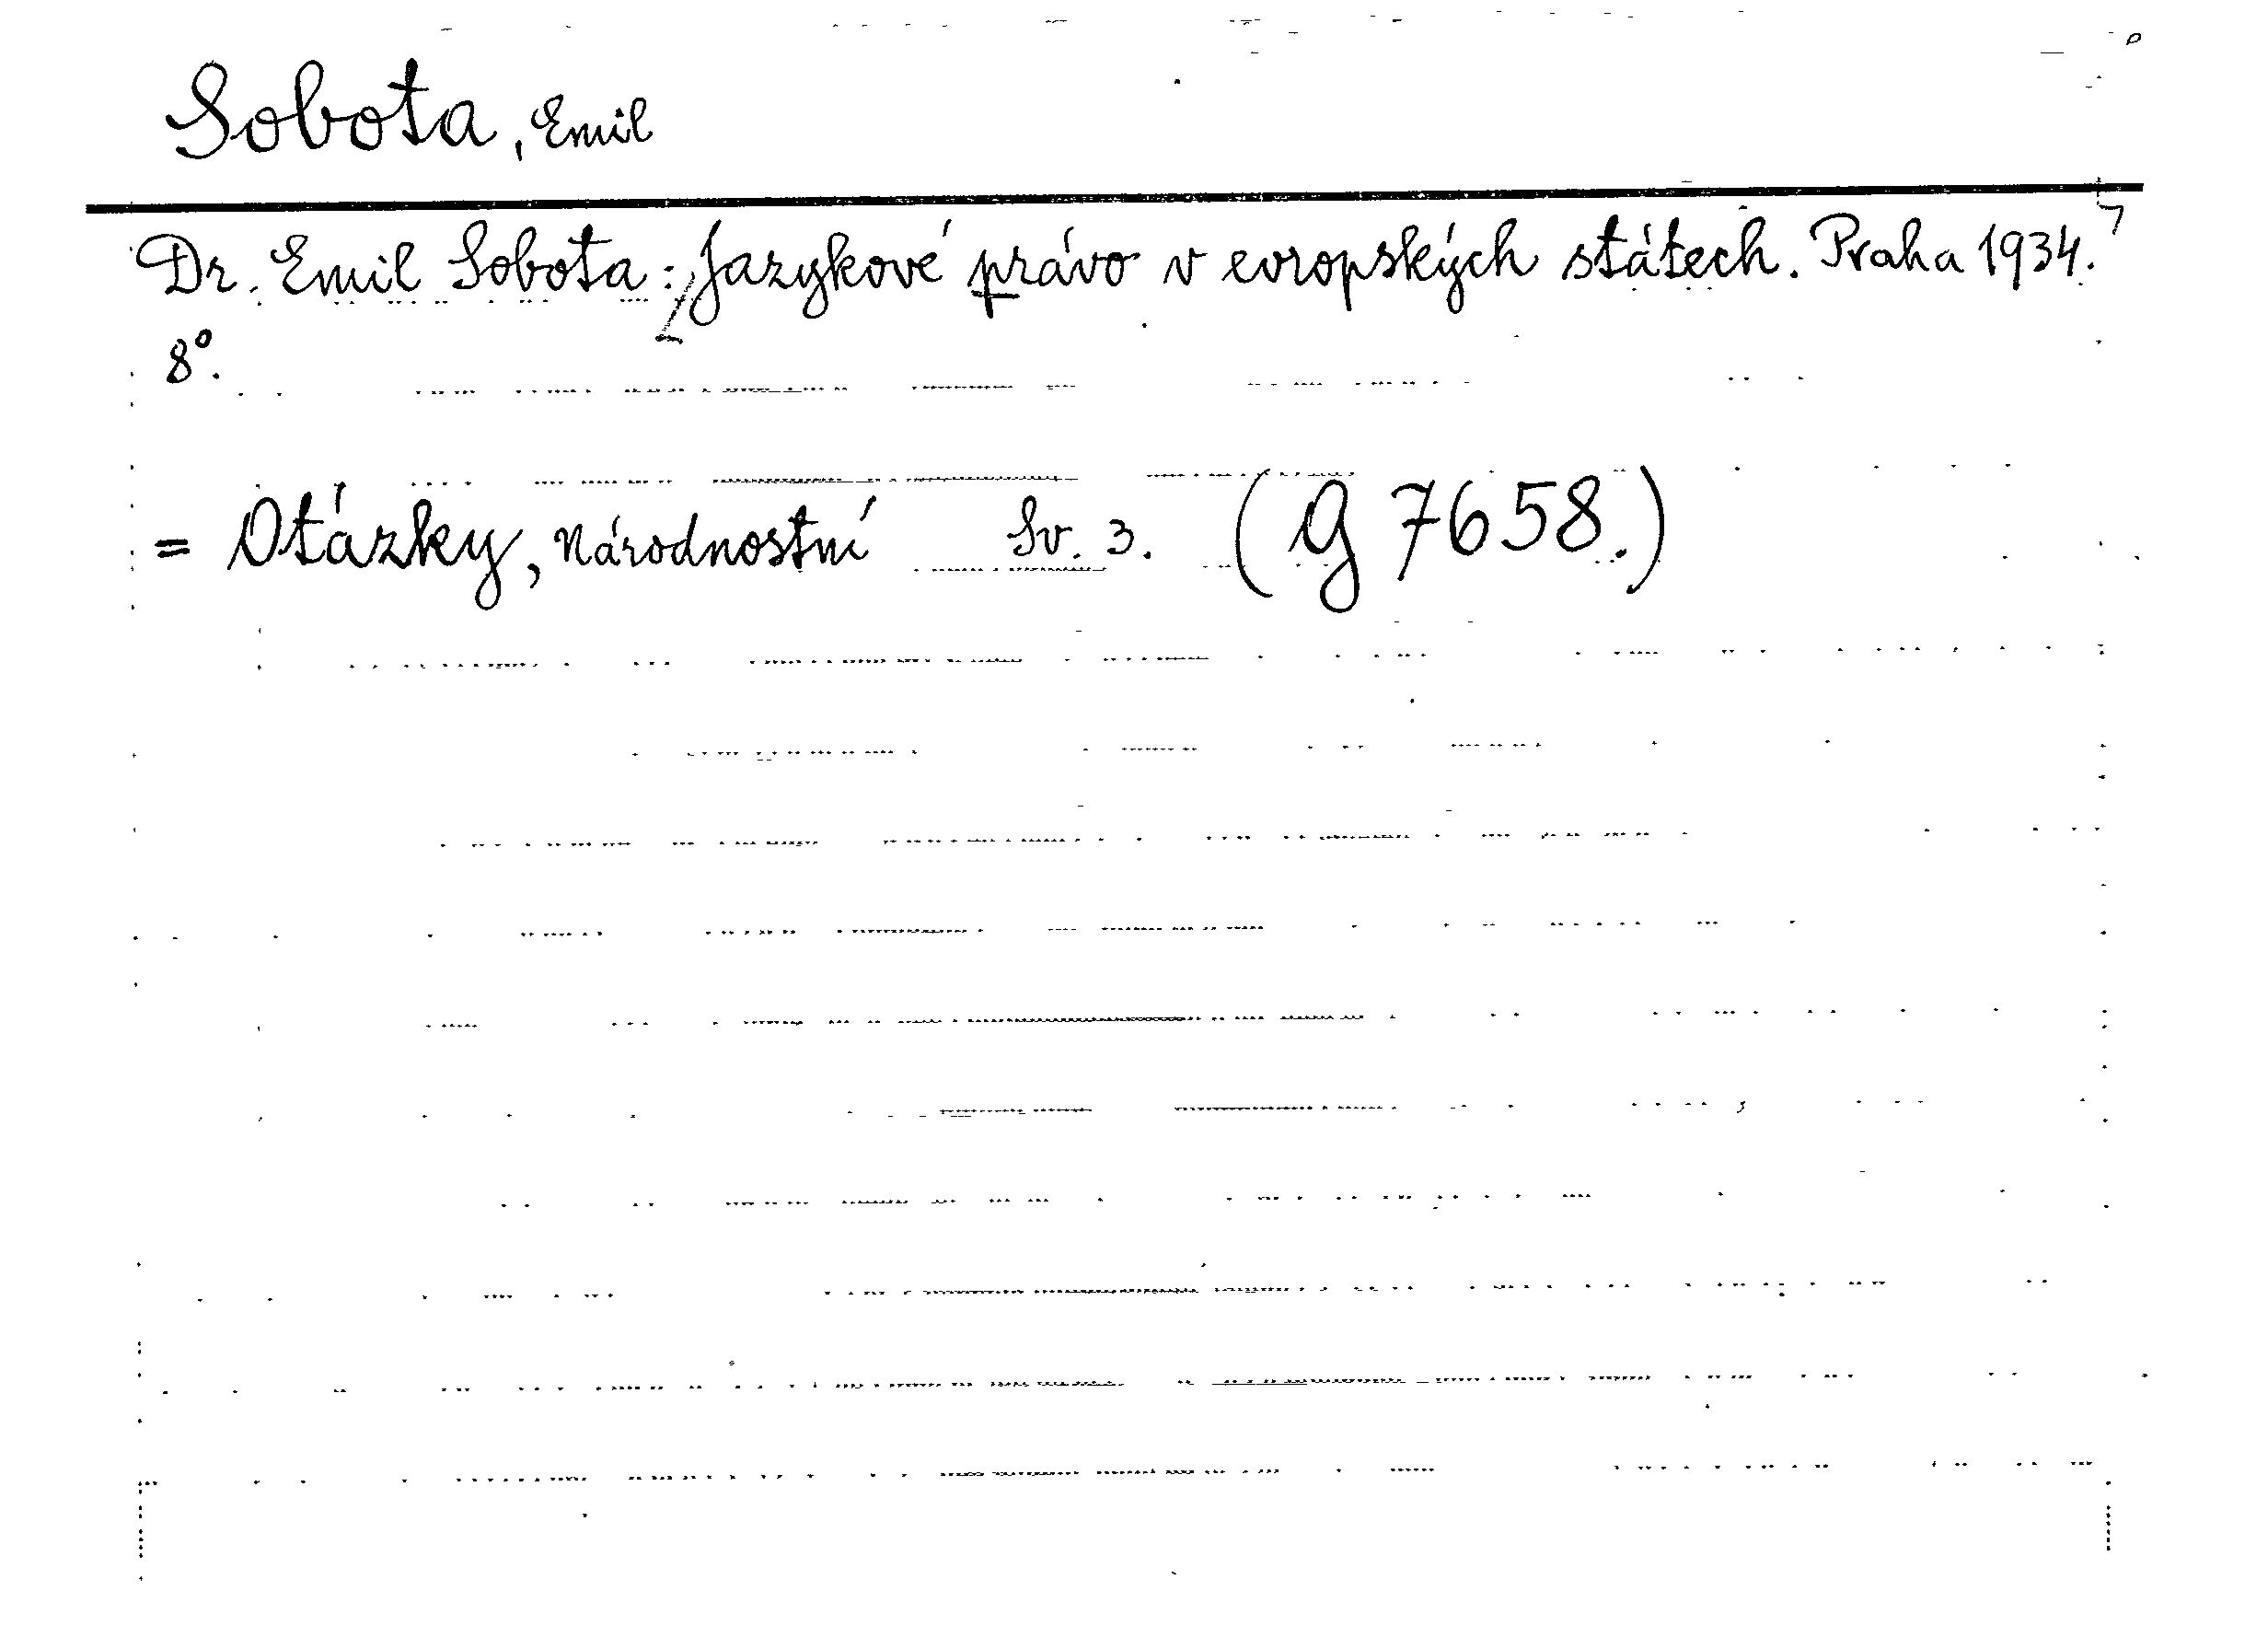 Sobota, Emil
Dr. Emil Sobota: Jazykové právo v evropských státech. Praha 1934.
8°.
= Otázky, národnostní Sv. 3. (G 7658.)